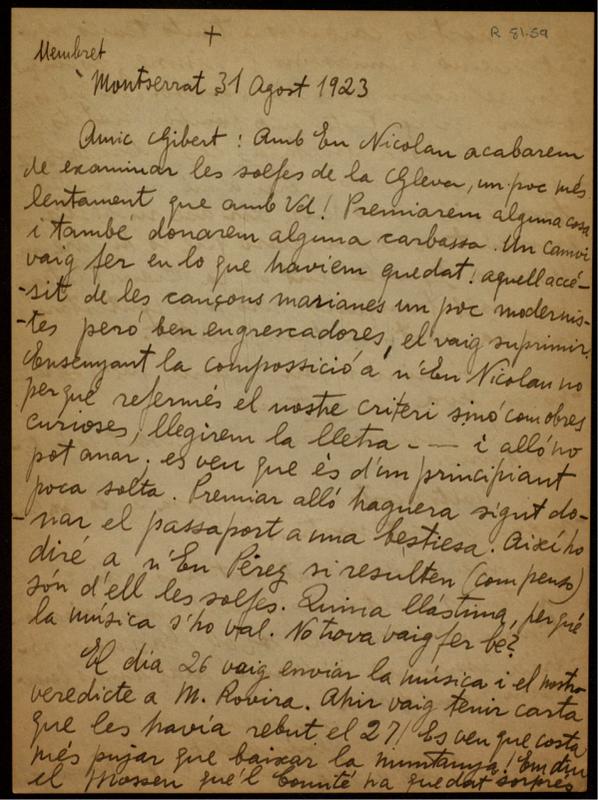 +
R 81.59
Membret
Montserrat 31 Agost 1923
Amic Gibert: Amb En Nicolau acabarem
de examinar les solfes de la Gleva, un poc més
lentament que amb Vd! Premiarem alguna cosa
i també donarem alguna carbassa. Un camvi
vaig fer en lo que haviem quedat: aquell accé-
-sit de les cançons marianes un poc modernis-
-tes peró ben engrescadores, el vaig suprimir.
Ensenyant la compossició a n'En Nicolau no
perqué refermés el nostre criteri sinó com obres
curioses, llegirem la lletra - — i alló no
pot anar; es veu que és d'un principiant
poca solta. Premiar alló haguera sigut do-
-nar el passaport a una bestiesa. Aixi ho
diré a n'En Pérez si resulten (com penso)
són d'ell les solfes. Quina llástima, perqué
la música s'ho val. No trova vaig fer bé?
El dia 26 vaig enviar la música i el nostre
veredicte a M. Rovira. Ahir vaig tenir carta
que les havía rebut el 27! Es veu que costa
més pujar que baixar la muntanya! Em diu
el Mossen que'l Comité ha quedat sorprés